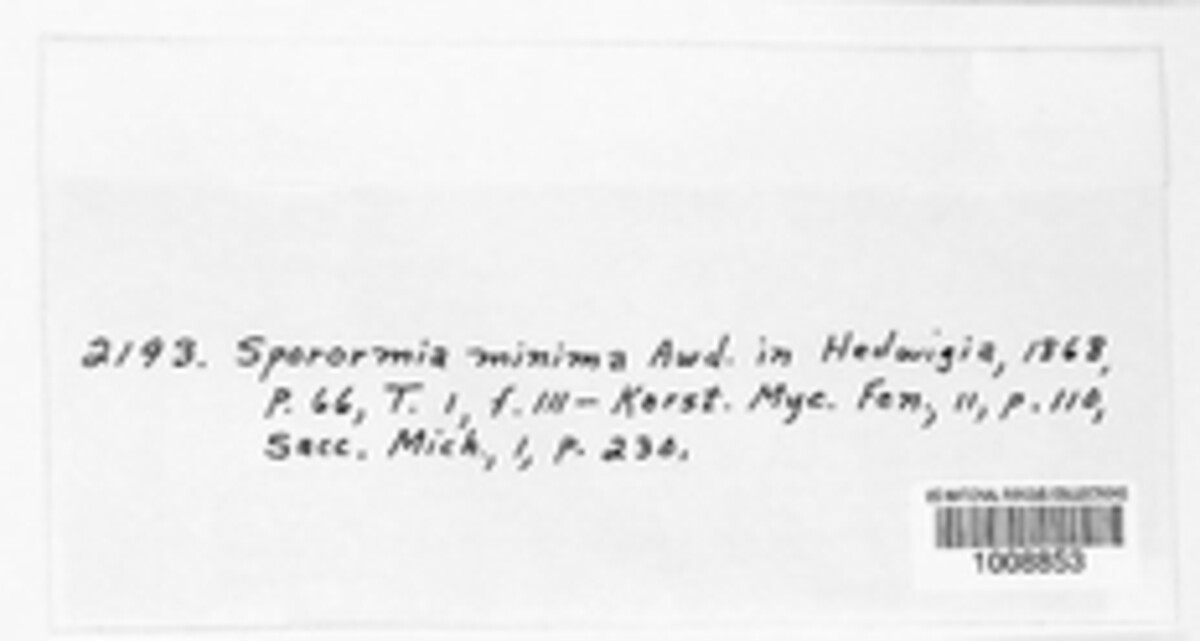 2193. Sporormia minima Awd. in Hedwigia, 1868,
P. 66, T. 1, f. III - Karst. Myc. Fen, II, p. 110,
Sacc. Mich., 1, P. 230.
US NATIONAL FUNGUS COLLECTIONS
1008853